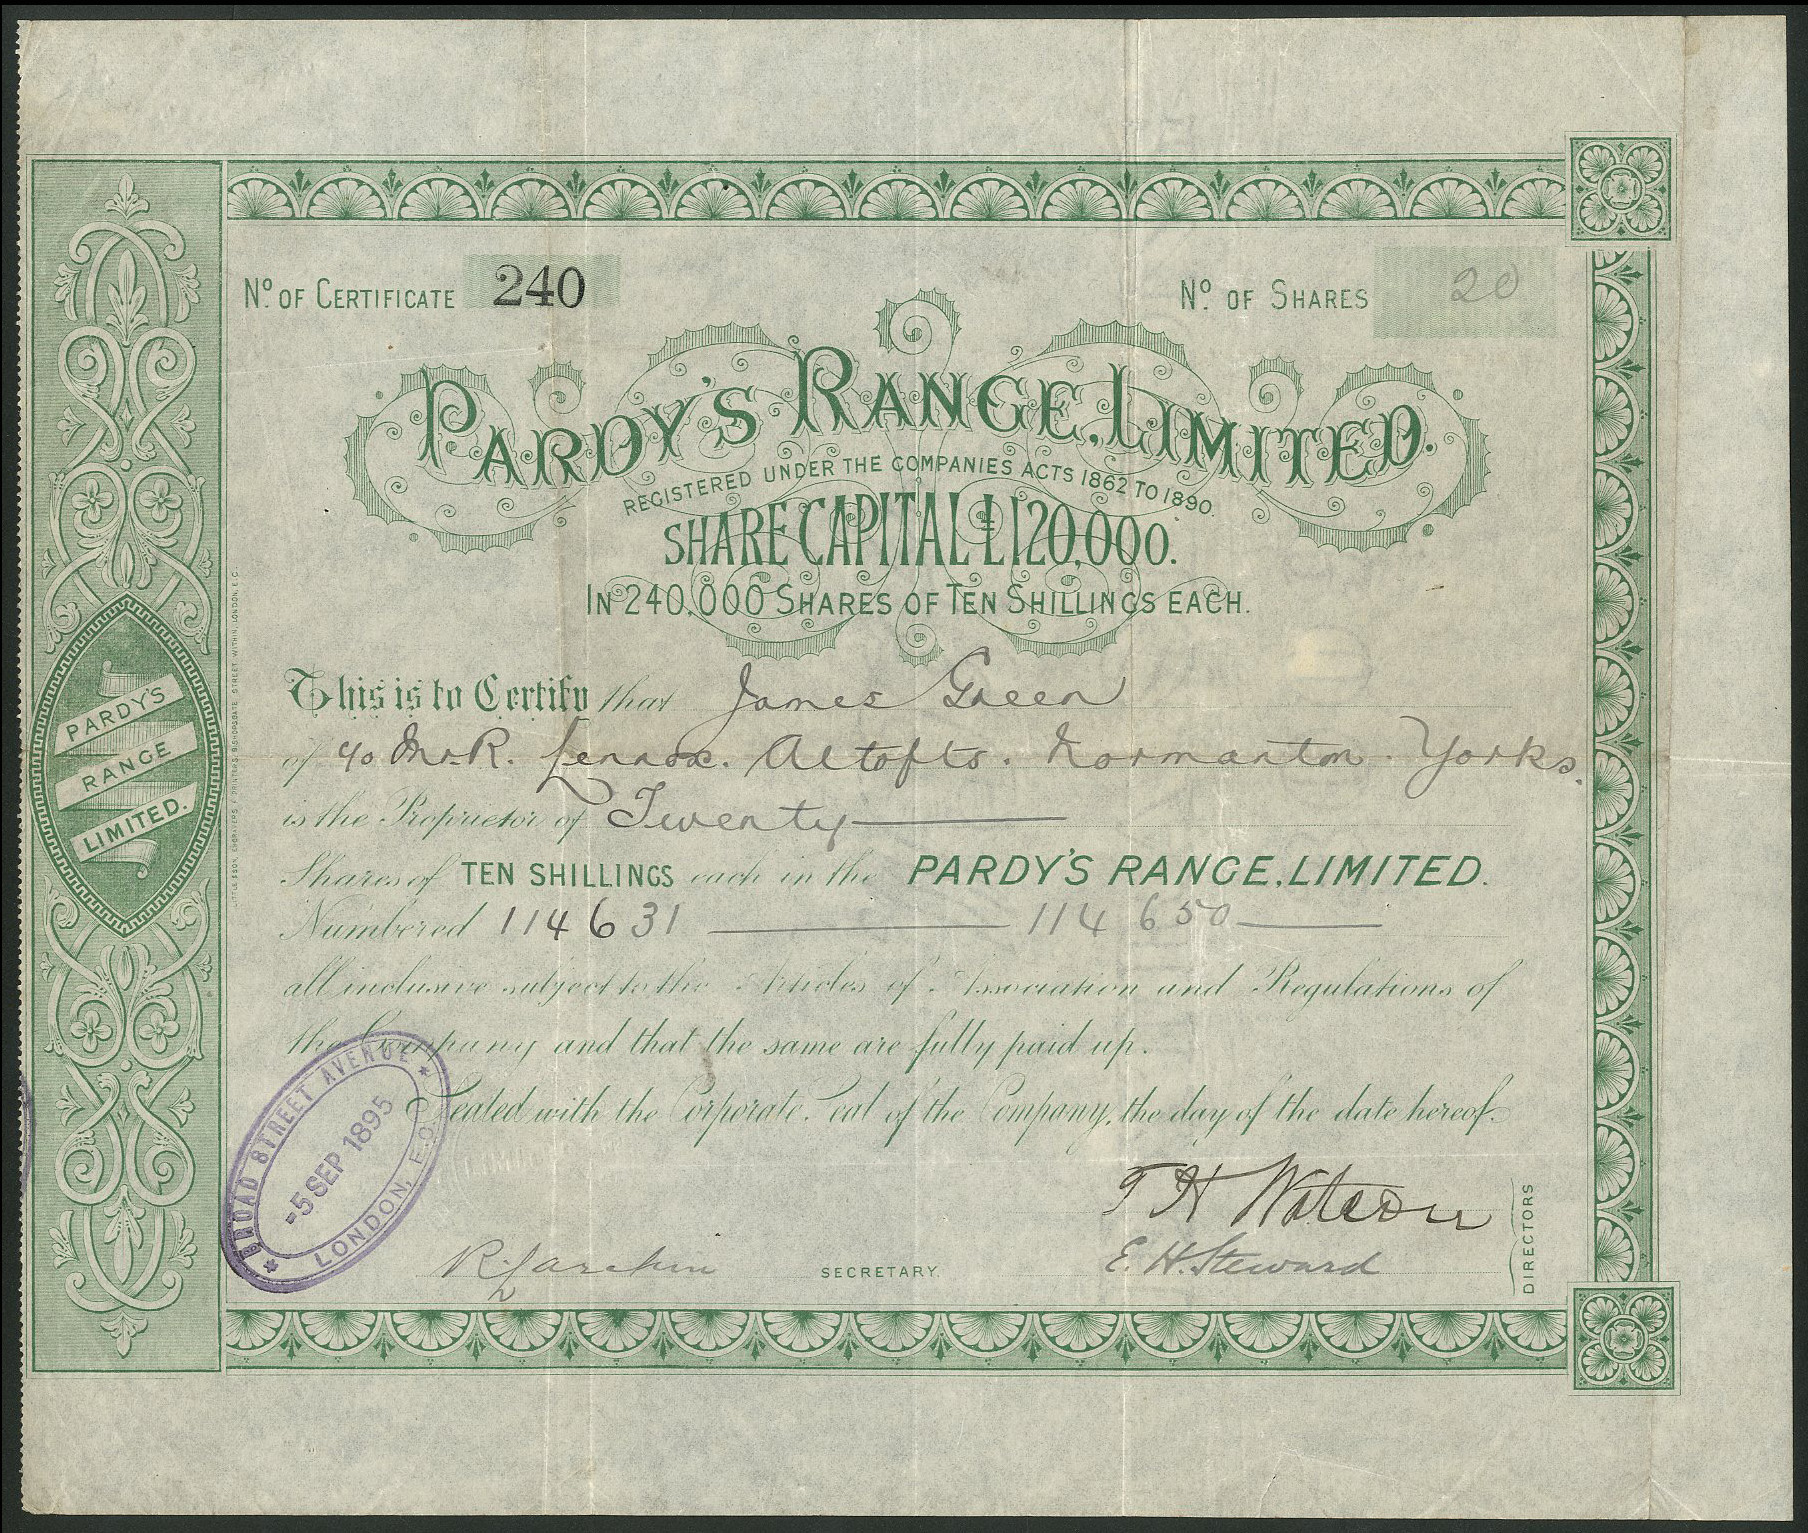 Nº. OF CERTIFICATE 240
Nº. OF SHARES 20
PARDY'S RANGE, LIMITED.
REGISTERED UNDER THE COMPANIES ACTS 1862 TO 1890.
SHARE CAPITAL £120,000.
IN 240,000 SHARES OF TEN SHILLINGS EACH.
This is to Certify that James Green
of c/o Mr R. Lennox. Altofts. Normanton. Yorks.
is the Proprietor of Twenty
Shares of TEN SHILLINGS each in the PARDY'S RANGE, LIMITED.
Numbered 114631 — 114650
all inclusive subject to the Articles of Association and Regulations of
the Company and that the same are fully paid up.
Sealed with the Corporate Seal of the Company, the day of the date hereof.
T H Watson
E. H. Steward
DIRECTORS
SECRETARY.
BROAD STREET AVENUE
-5 SEP 1895
LONDON, E.C.
PARDY'S
RANGE
LIMITED.